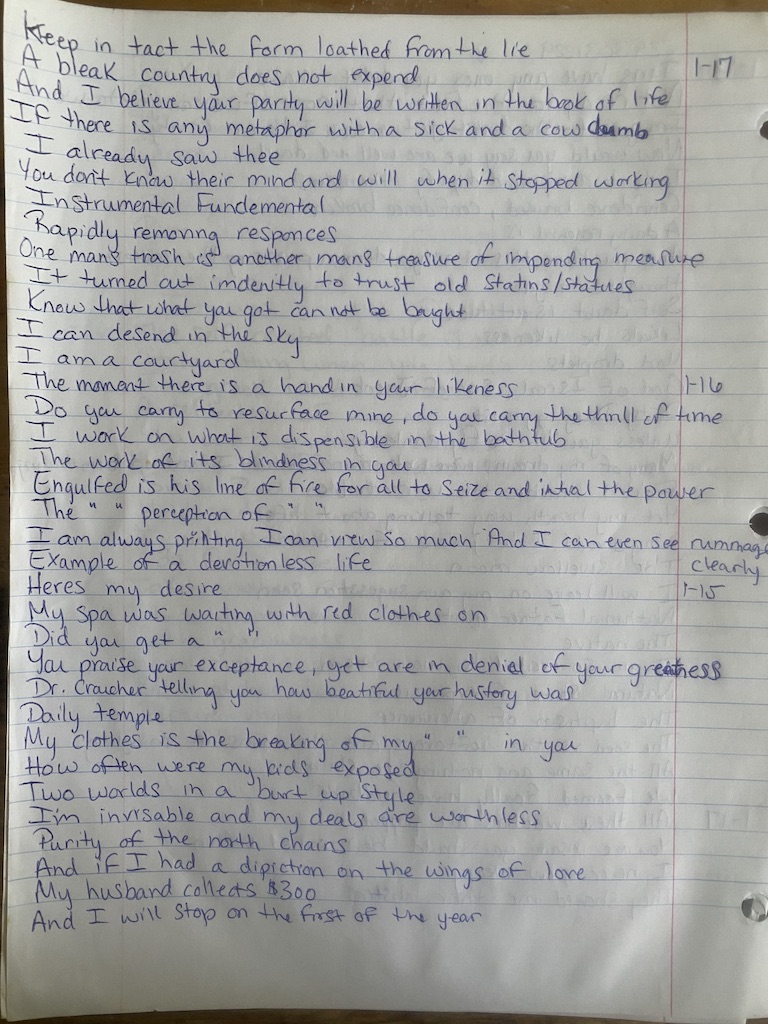 Keep in tact the form loathed from the lie
A bleak country does not expend 1-17
And I believe your parity will be written in the book of life
If there is any metaphor with a sick and a cow dumb
I already saw thee
You don't know their mind and will when it stopped working
Instrumental Fundemental
Rapidly removing responces
One man's trash is another mans treasure of impending measure
It turned out imdently to trust old Statins/Statues
Know that what you got can not be bought
I can desend in the sky
I am a courtyard
The moment there is a hand in your likeness 1-16
Do you carry to resurface mine, do you carry the thrill of time
I work on what is dispensible in the bathtub
The work of its blindness in you
Engulfed is his line of fire for all to seize and intial the power
The " " perception of " "
I am always printing I can view so much And I can even see rummage clearly
Example of a devotionless life
Heres my desire 1-15
My spa was waiting with red clothes on
Did you get a " "
You praise your exceptance, yet are in denial of your greatness
Dr. Craucher telling you how beatiful your history was
Daily temple
My clothes is the breaking of my " " in you
How often were my kids exposed
Two worlds in a burt up style
I'm invisable and my deals are worthless
Purity of the north chains
And if I had a dipiction on the wings of love
My husband collects $300
And I will stop on the first of the year